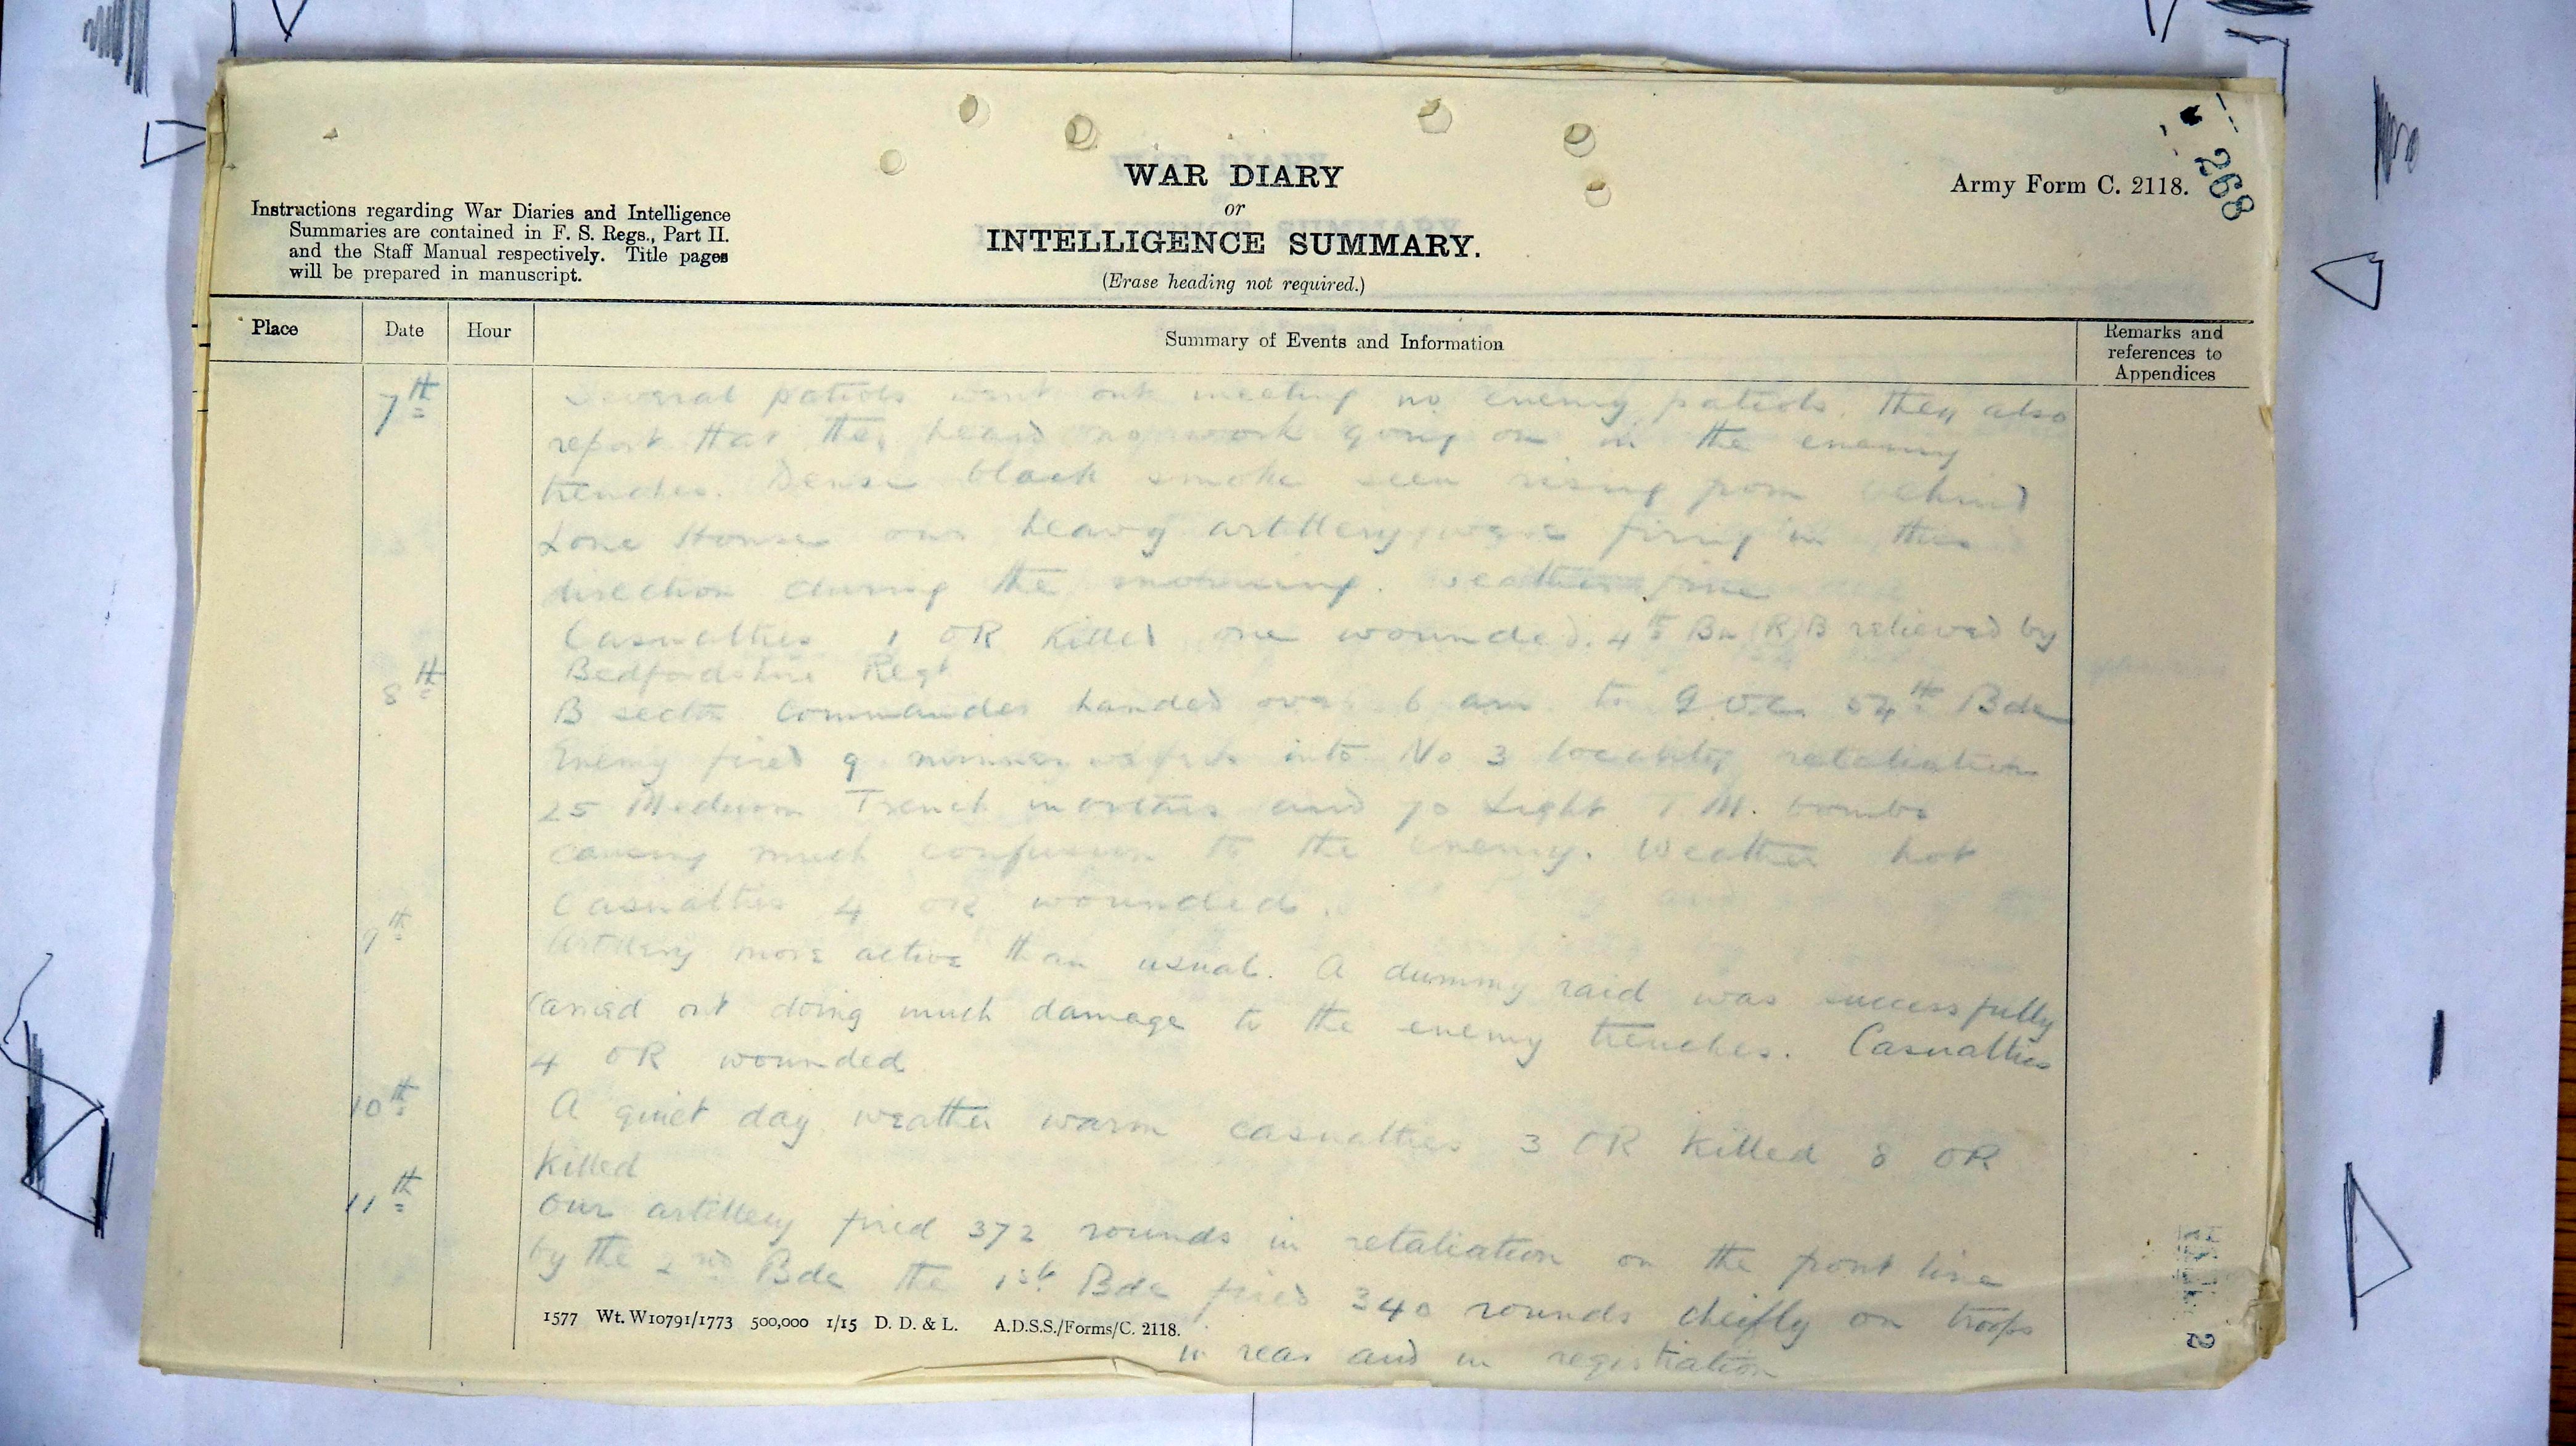 WAR DIARY
or
INTELLIGENCE SUMMARY.
(Erase heading not required.)
Army Form C. 2118.
268
Instructions regarding War Diaries and Intelligence
Summaries are contained in F. S. Regs., Part II.
and the Staff Manual respectively. Title pages
will be prepared in manuscript.
Place Date Hour Summary of Events and Information Remarks and references to Appendices
7th Several patrols went out meeting no enemy patrols. They also
report that they heard no work going on in the enemy
trenches. Dense black smoke seen rising from behind
Lone House our heavy artillery were firing in this
direction during the morning. Weather fine
Casualties 1 OR Killed one wounded. 4th Bn RB relieved by
Bedfordshire Regt
8th B sector Commander handed over 6 am to GOC 54th Bde
Enemy fired 9 minnenwerfers into No 3 locality retaliation
25 Medium Trench mortars and 70 Light T.M. bombs
causing much confusion to the enemy. Weather hot
Casualties 4 OR wounded.
9th Artillery more active than usual. A dummy raid was successfully
carried out doing much damage to the enemy trenches. Casualties
4 OR wounded
10th A quiet day weather warm casualties 3 OR Killed 8 OR
Killed
11th Our artillery fired 372 rounds in retaliation on the front line
by the 2nd Bde the 1st Bde fired 340 rounds cheifly on troops
in rear and in registration
1577 Wt. W10791/1773 500,000 1/15 D. D. & L. A.D.S.S./Forms/C. 2118.
2